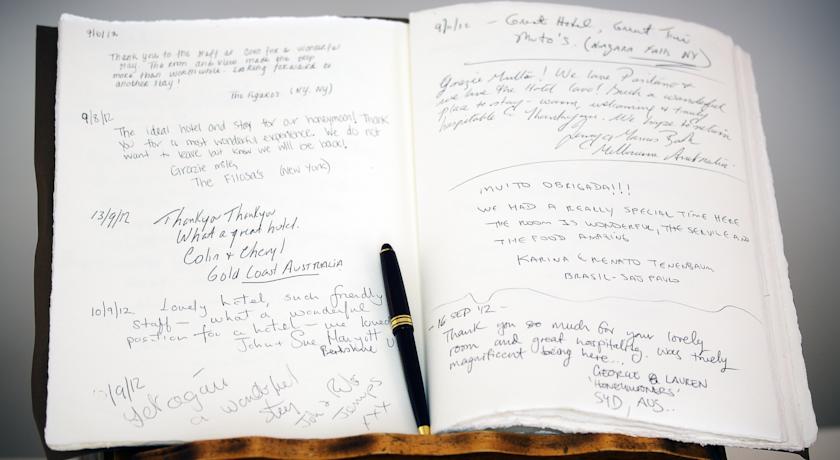 9/6/12
Thank you to the staff at Cove for a wonderful
stay. The room and view made the trip
more than worthwhile. Looking forward to
another stay!
The Figaros (NY, NY)
9/8/12
The ideal hotel and stay for our honeymoon! Thank
you for a most wonderful experience. We do not
want to leave but know we will be back!
Grazie
The Filosa's (New York)
13/9/12
Thankyou Thankyou
What a great hotel.
Colin & Cheryl
Gold Coast AUSTRALIA
10/9/12 Lovely hotel, such friendly
staff - what a wonderful
position for a hotel - we loved
John & Sue
/9/12
yet again
a wonderful
stay
xxx
9/11/12 - Great Hotel, Great
(Niagara Falls NY)
Grazie Mille! We love Positano &
we love the Hotel! Such a wonderful
place to stay - warm, welcoming & truly
hospitable. We hope to return
Melbourne Australia.
MUITO OBRIGADA!!!
WE HAD A REALLY SPECIAL TIME HERE
THE ROOM IS WONDERFUL, THE SERVICE AND
THE FOOD AMAZING
KARINA & RENATO TENENBAUM
BRASIL - SAO PAULO
- 16 SEP '12 -
Thank you so much for your lovely
room and great hospitality. Was truely
magnificent being here...
GEORGE & LAUREN
'HONEYMOONERS'
SYD, AUS..